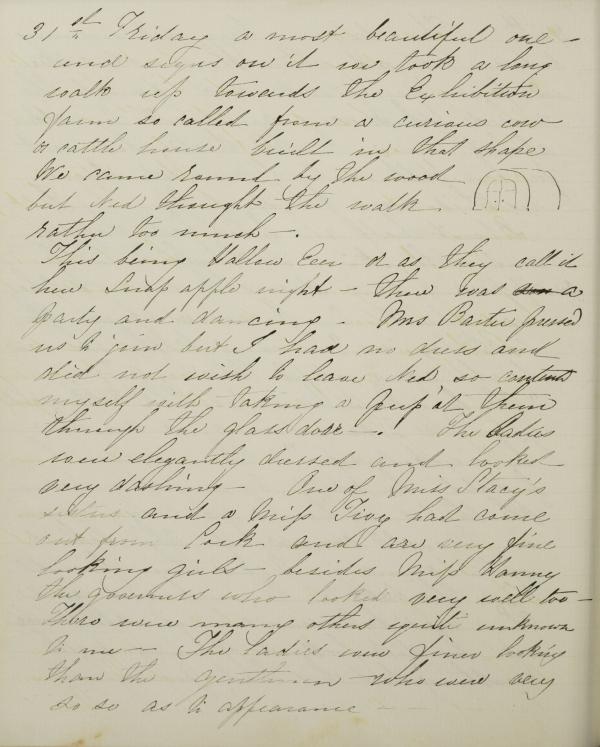 31st Friday a most beautiful one -
and signs on it we took a long
walk up towards the Exhibition
farm so called from a curious cow
or cattle house built in that shape
We came round by the wood
but Ned thought the walk
rather too much -.
This being Hallow Een or as they call it
here Snap apple night - there was a
party and dancing - Mrs Barter pressed
us to join but I had no dress and
did not wish to leave Ned so content
myself with taking a peep at them
through the glass door -. The ladies
were elegantly dressed and looked
very dashing - One of Miss Stacy's
sisters and a Miss Tivy had come
out from Cork and are very fine
looking girls - besides Miss Hanny
the governess who looked very well too -
There were many others quite unknown
to me - The ladies were finer looking
than the gentlemen who were very
so so as to appearance -